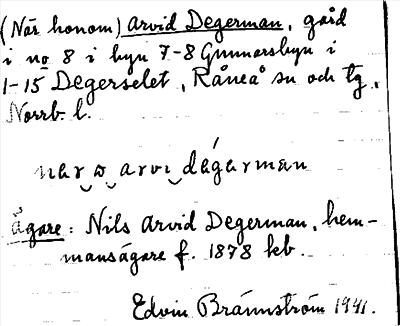 (När honom) Arvid Degerman, gård
i no 8 i byn 7-8 Gunnarsbyn i
1-15 Degerselet, Råneå sn och tg,
Norrb. l.
nar ɷ arvi dégærman
ägare: Nils Arvid Degerman, hem-
mansägare f. 1878 leb.
Edvin Brännström 1941.